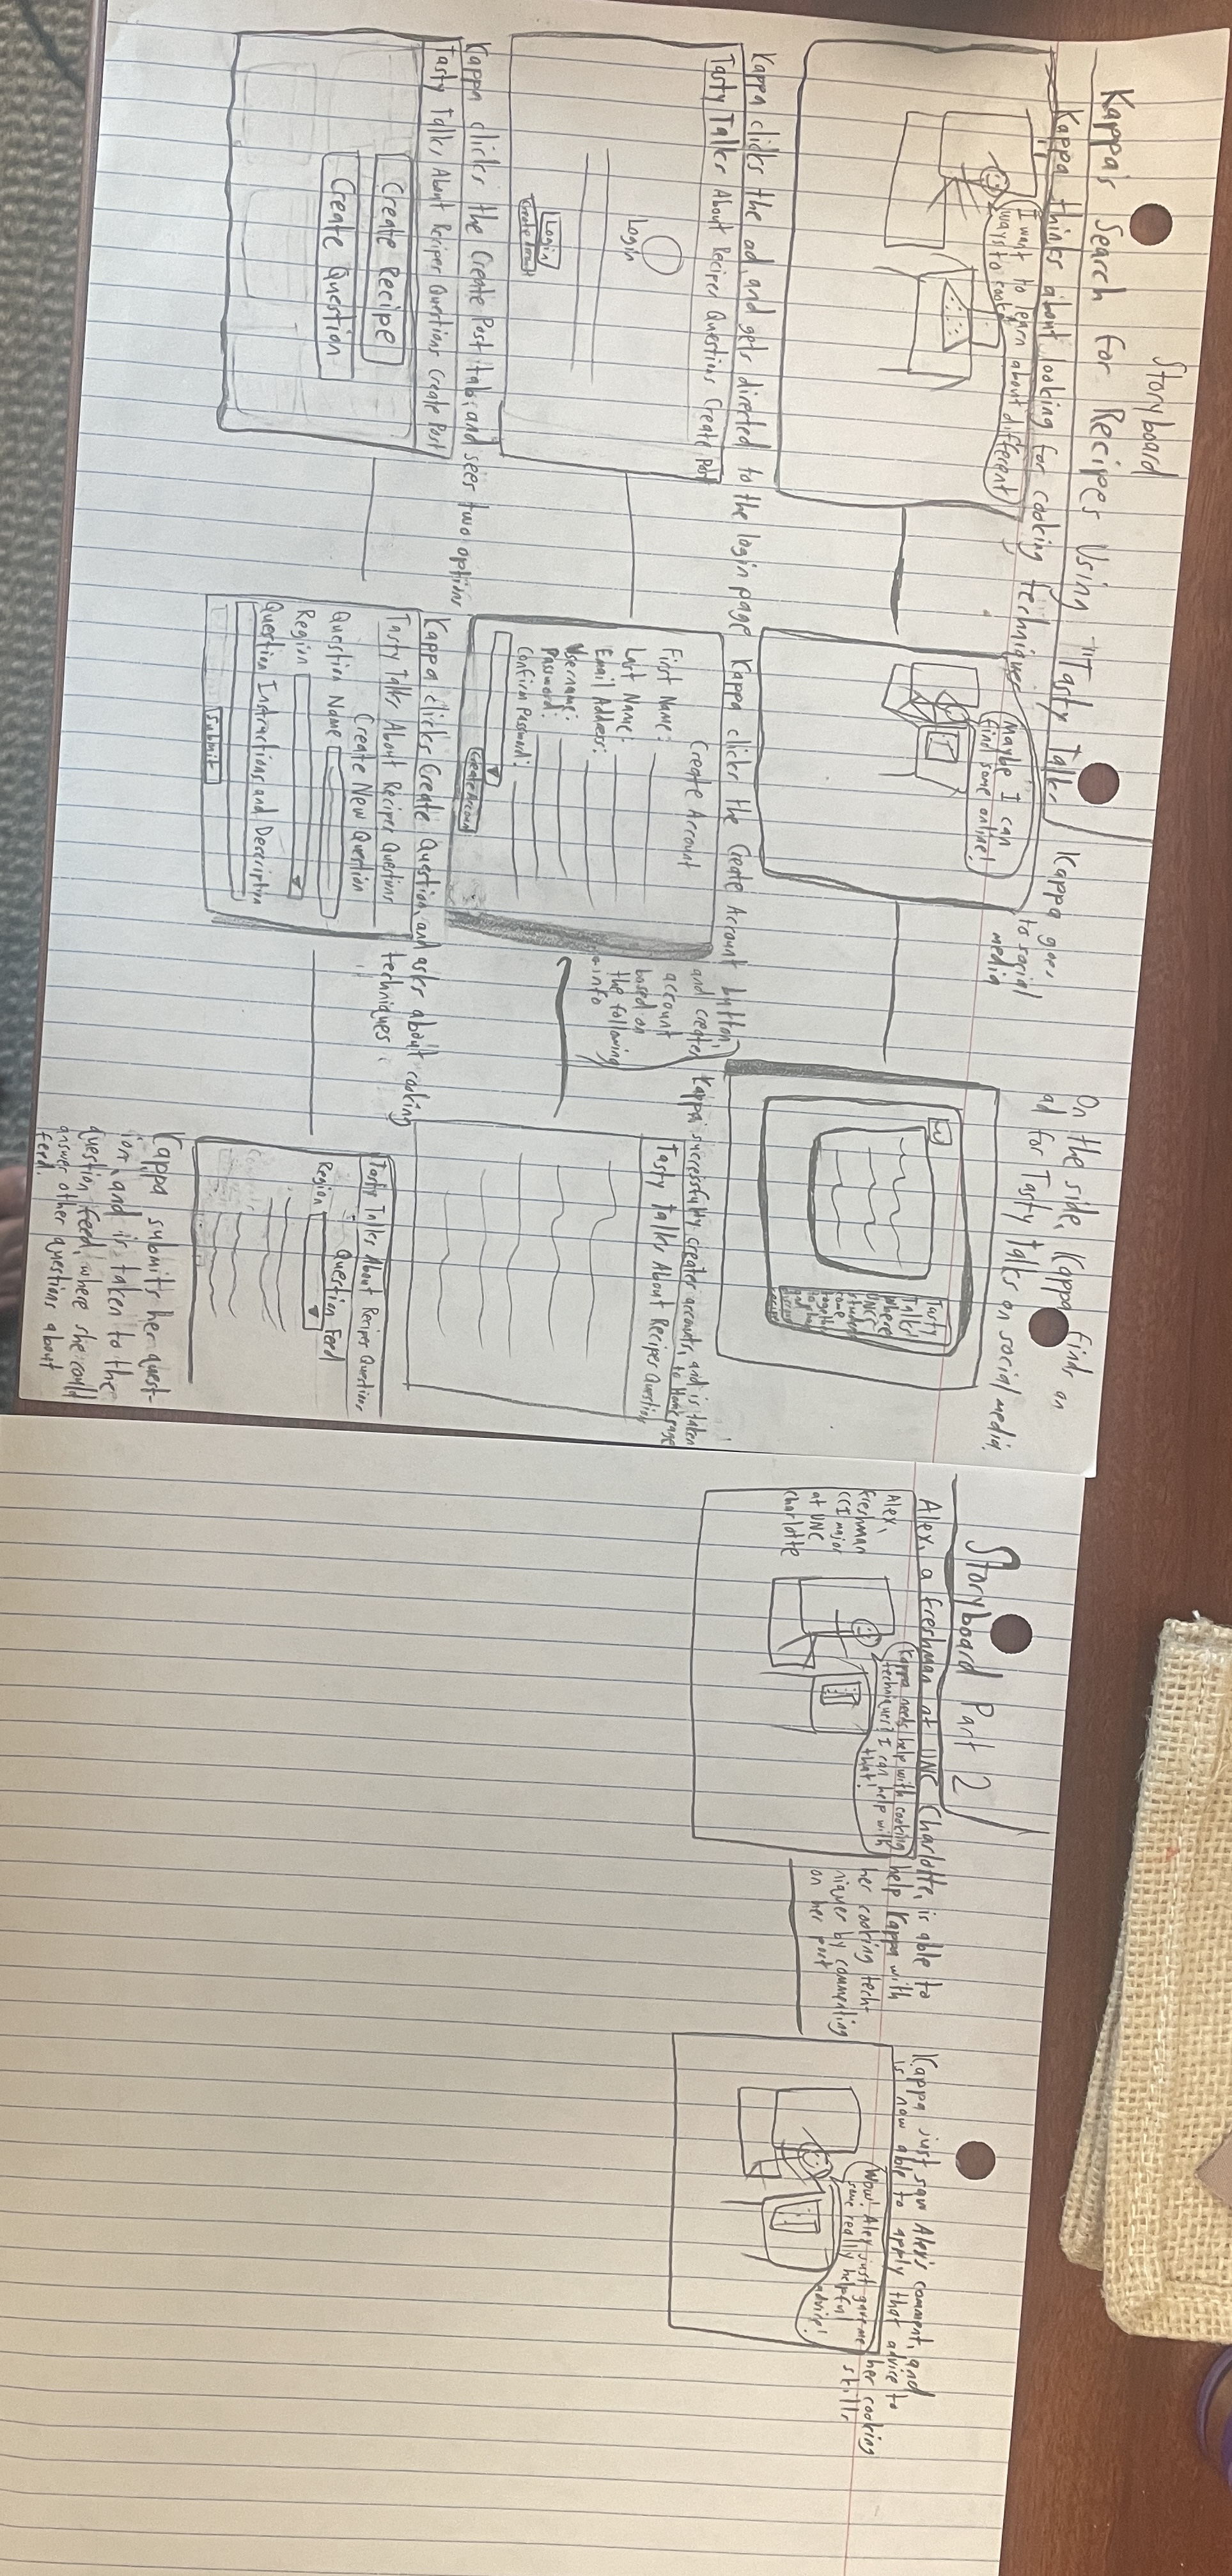 Storyboard
Kappa's Search for Recipes Using Tasty Talks
Kappa thinks about looking for cooking techniques
I want to learn about different
ways to cook!
Kappa goes
to social
media
Maybe I can
find some online!
On the side, Kappa finds an
ad for Tasty Talks on social media.
Tasty
Talks!
Where
UNCC
students
come
together
Kappa clicks the ad, and gets directed to the login page
Tasty Talks About Recipes Questions Create Post
Login
Login
Create Account
Kappa clicks the Create Account button,
and creates
account
based on
the following
info
Create Account
First Name:
Last Name:
Email Address:
Username:
Password:
Confirm Password:
Create Account
Kappa successfully creates accounts, and is taken
to Homepage
Tasty Talks About Recipes Question
Kappa clicks the Create Post tab, and sees two options
Tasty Talks About Recipes Questions Create Post
Create Recipe
Create Question
Kappa clicks Create Question, and asks about cooking
techniques.
Tasty Talks About Recipes Questions
Create New Question
Question Name
Region
Question Instructions and Description
Submit
Tasty Talks About Recipes Questions
Question Feed
Region:
Kappa submits her quest-
ion, and is taken to the
question feed, where she could
answer other questions about
food.
Storyboard Part 2
Alex, a freshman at UNC Charlotte, is able to
help Kappa with
her cooking tech-
niques by commenting
on her post
Alex,
freshman
CCI major
at UNC
Charlotte
Kappa needs help with cooking
techniques? I can help with
that!
Kappa just saw Alex's comment, and
is now able to apply that advice to
her cooking
skills.
Wow! Alex just gave me
some really helpful
advice!